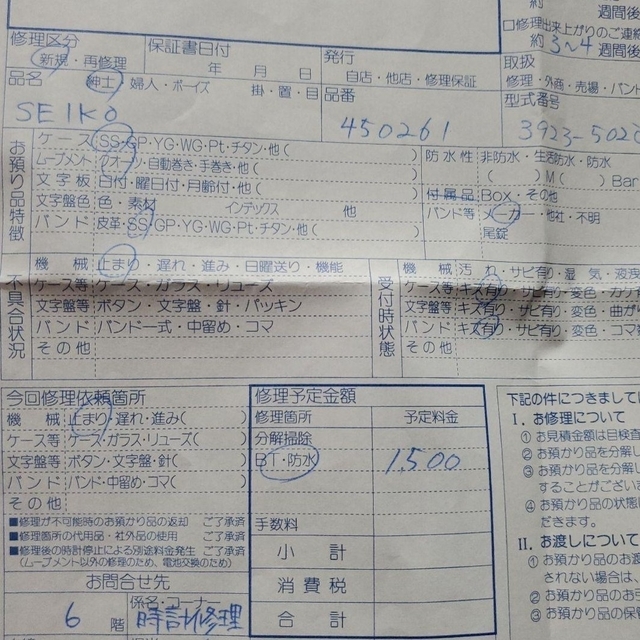 約 週間後
口修理出来上がりのご連絡
約 3~4 週間後
修理区分 保証書日付 発行 取扱
新規・再修理 年 月 日 自店・他店・修理保証 修理・外商・売場・バンド
品名 紳士・婦人・ボーイズ 掛・置・目 品番 型式番号
SEIKO 450261 3923-502
お預り品特徴
ケース SS・GP・YG・WG・Pt・チタン・他( )
ムーブメント クオーツ・自動巻き・手巻き・他( )
文字板 日付・曜日付・月齢付・他( )
文字盤色 色・素材 インデックス 他
バンド 皮革・SS・GP・YG・WG・Pt・チタン・他( )
防水性 非防水・生活防水・防水
( )M( )Bar
付属品 Box・その他
バンド等 メーカー・他社・不明
尾錠
不具合状況
機械 止まり・遅れ・進み・日曜送り・機能
ケース等 ケース・ガラス・リューズ
文字盤等 ボタン・文字盤・針・パッキン
バンド バンド一式・中留め・コマ
その他
受付時状態
機械 汚れ・サビ有り・湿気・液
ケース等 キズ有り・サビ有り・変色・カケ
文字盤等 キズ有り・サビ有り・変色・曲が
バンド キズ有り・サビ有り・変色・コマ
その他
今回修理依頼箇所
機械 止まり・遅れ・進み( )
ケース等 ケース・ガラス・リューズ( )
文字盤等 ボタン・文字盤・針( )
バンド バンド・中留め・コマ( )
その他
■修理が不可能時のお預かり品の返却 ご了承済
■修理箇所の代用品・社外品の使用 ご了承済
■修理後の時計停止による別途料金発生 ご了承済
(ムーブメント以外の修理のため、電池交換のため)
お問合せ先
6 階 係名・コーナー 時計修理
修理予定金額
修理箇所 予定料金
分解掃除
BT・防水 1,500
手数料
小計
消費税
合計
下記の件につきまして
I. お修理について
① お見積金額は目検査
② お預かり品を分解し
③ お預かり品を分解
することがござい
④ お預かり品の状態
だきます。
II. お渡しについて
① お預かり品のお渡
されない場合は、
② お預かり品のお引
③ お預かり品の保管